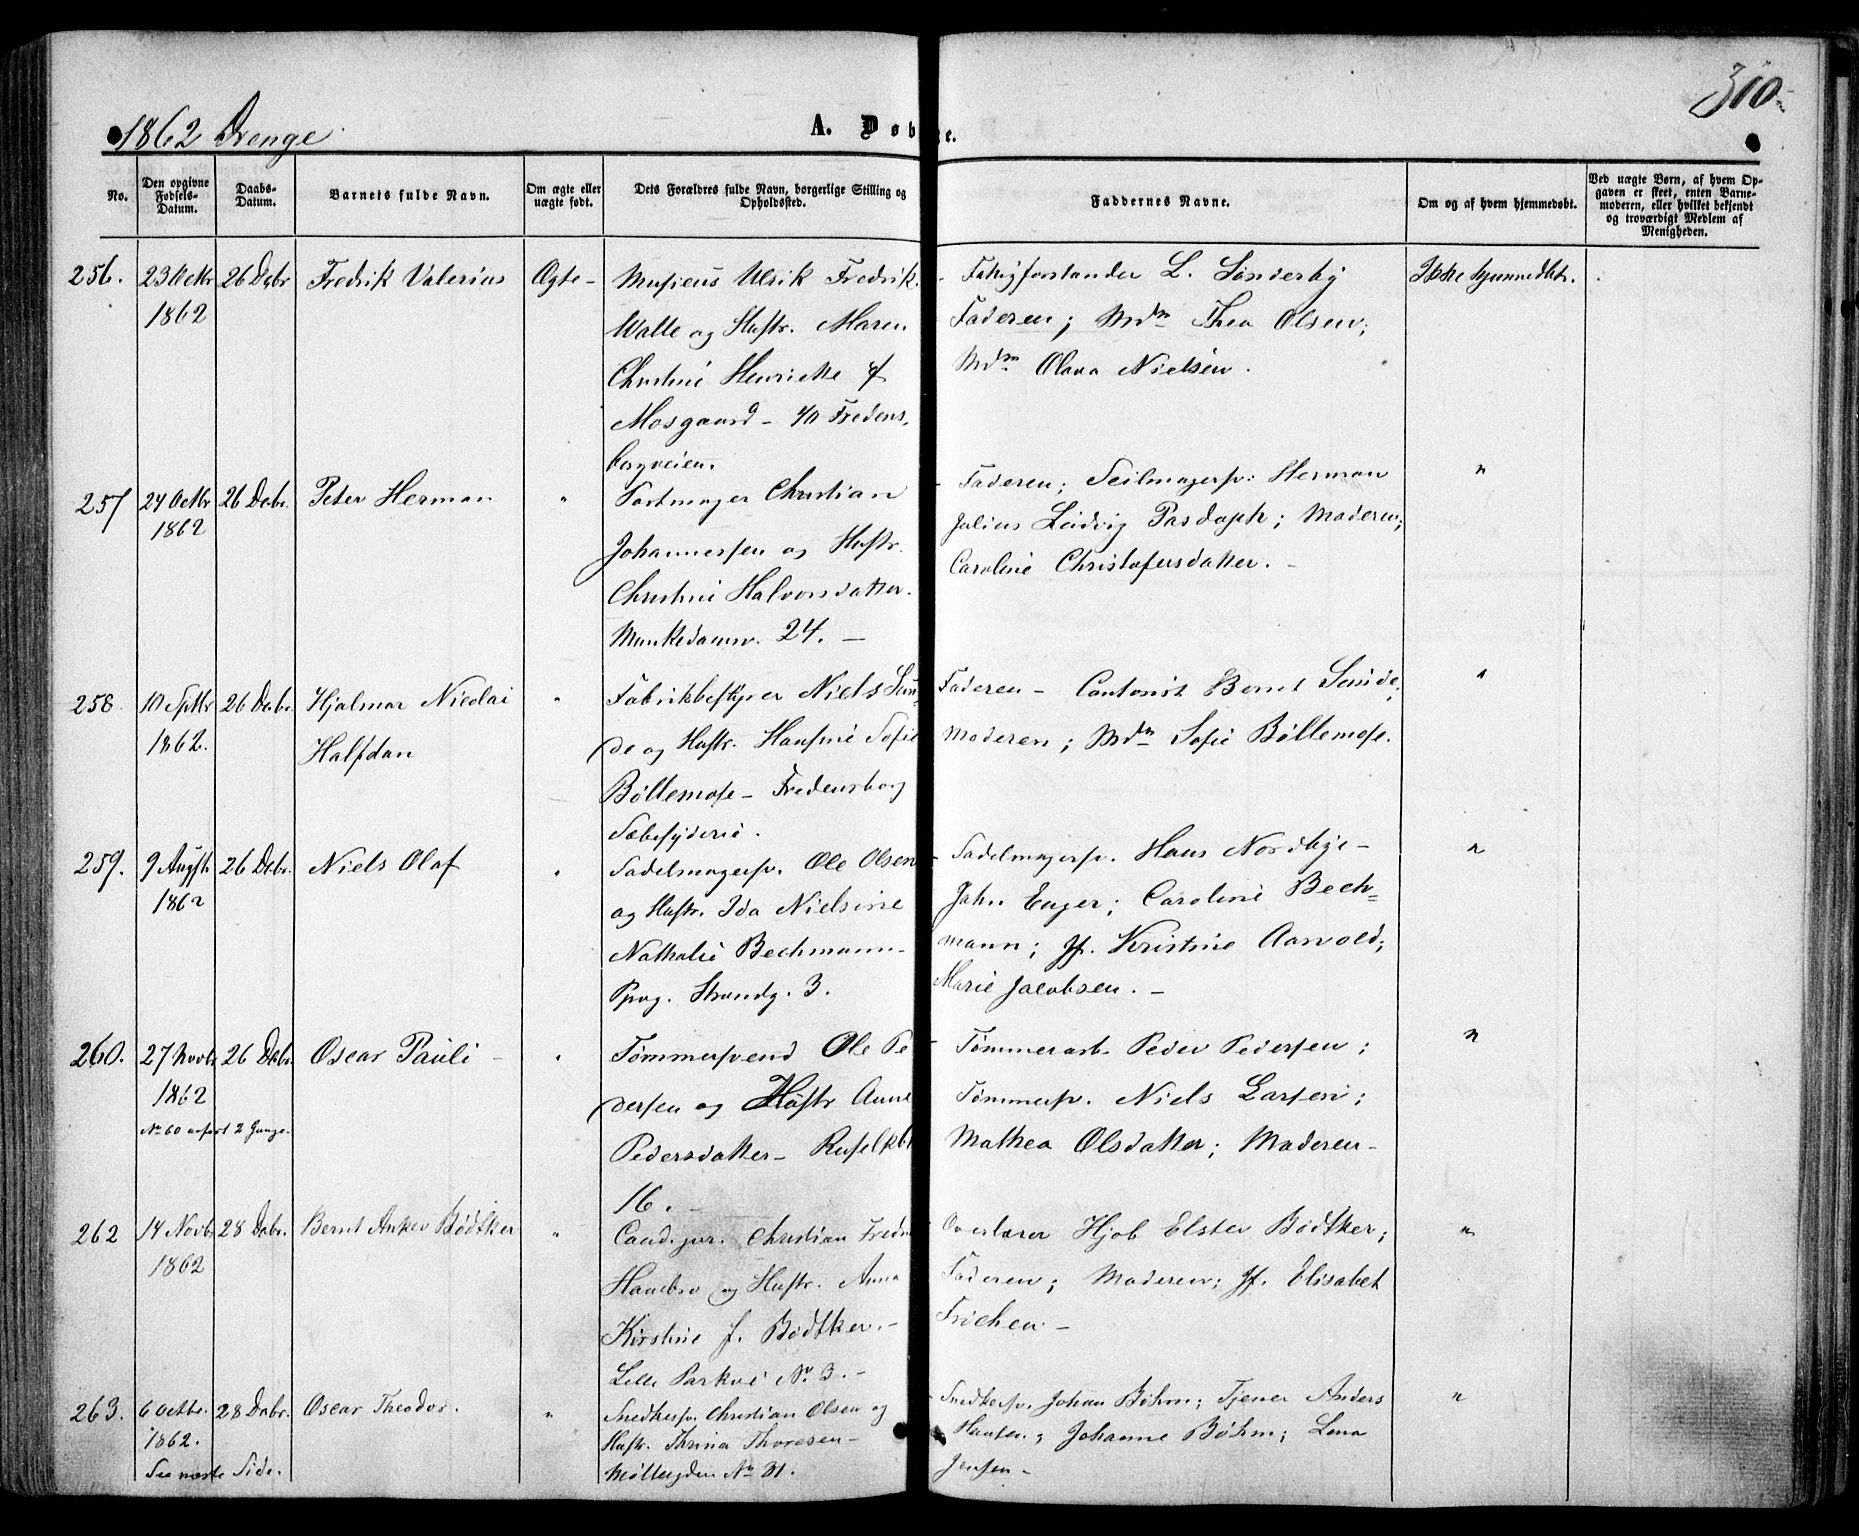 310.
1862 Drenge
A. Døbte.
No.
Den opgivne Fødsels-Datum.
Daabs-Datum.
Barnets fulde Navn.
Om ægte eller uægte født.
Dets Forældres fulde Navn, borgerlige Stilling og Opholdssted.
Faddernes Navne.
Om og af hvem hjemmedøbt.
Ved uægte Børn, af hvem Opgaven er skeet, enten Barnemoderen, eller hvilket bekjendt og troværdigt Medlem af Menigheden.
256. 23 Octbr 1862 26 Debr Fredrik Valerius Ægte -
Musicus Ulrik Fredrik
Walle og Hustr. Maren
Christine Henriette f
Mosgaard - 40 Fredens-
borgveien.
Fattigforstander L. Sønderby
Faderen; Mdm Thea Olsen;
Mdm Olava Nielsen.
Ikke hjemmedbt.
257 24 Octbr 1862 26 Debr. Peter Herman "
Portmager Christian
Johannessen og Hustr.
Christine Halvorsdatter.
Munkedamsv. 24. -
Faderen; Seilmagersv: Herman
Julius Ludvig Pasdaph; Moderen;
Caroline Christofersdatter. -
"
258 10 Sptbr 1862. 26 Debr. Hjalmar Nicolai
Halfdan "
Fabrikbestyrer Niels Sun-
de og Hustr. Hansine Sofie
Bøllemose - Fredensborg
Sæbesyderie.
Faderen - Cantonist Bernt Sunde;
Moderen; Mdm Sofie Bøllemose.
"
259. 9 Augst 1862 26 Debr. Niels Olaf "
Sadelmagersv. Ole Olsen
og Hustr. Ida Nielsine
Nathalie Bechmann -
Ppvg. Strandg. 3.
Sadelmagersv. Hans Nordbye -
John Enger; Caroline Bech-
mann; Jf. Kristine Aarvold;
Marie Jacobsen. -
"
260. 27 Novbr 1862 26 Debr Oscar Pauli - "
No 60 anført 2 Gange.
Tømmersvend Ole Pe
dersen og Hustr Anne
Pedersdatter - Ruseløkb
16. -
Tømmerarb. Peder Pedersen;
Tømmersv. Niels Larsen;
Mathea Olsdatter; Moderen -
"
262 14 Novbr 1862 28 Debr. Bernt Anker Bødtker "
Cand. jur. Christian Fredr
Hansbro og Hustr. Anna
Kirstine f. Bødtker. -
Lille Parkvei No. 3. -
Overlærer Hjob Elster Bødtker;
Faderen; Moderen; Jf. Elisabet
Frichen -
"
263. 6 Octbr. 1862. 28 Debr. Oscar Theodor. "
See næste Side.
Snedkersv. Christian Olsen og
Hustr. Thrina Thoresen -
Møllergden No 31.
Snedkersv. Johan Bøhm; Tjener Anders
Hansen; Johanne Bøhm; Lena
Jensen -
"